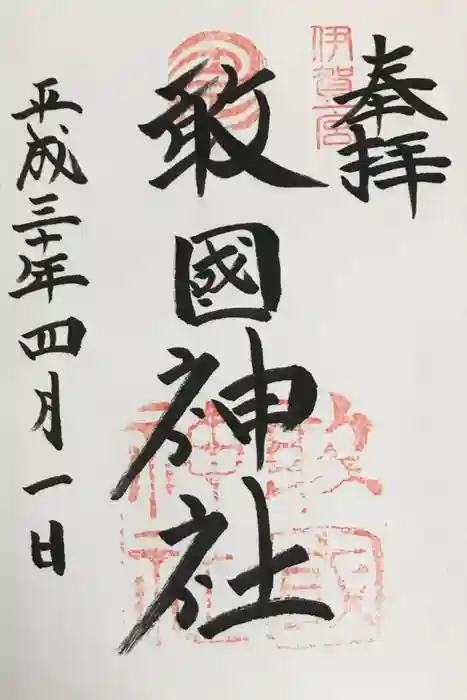 奉拝
伊賀一宮
敢國神社
敢國
神社
平成三十年四月一日